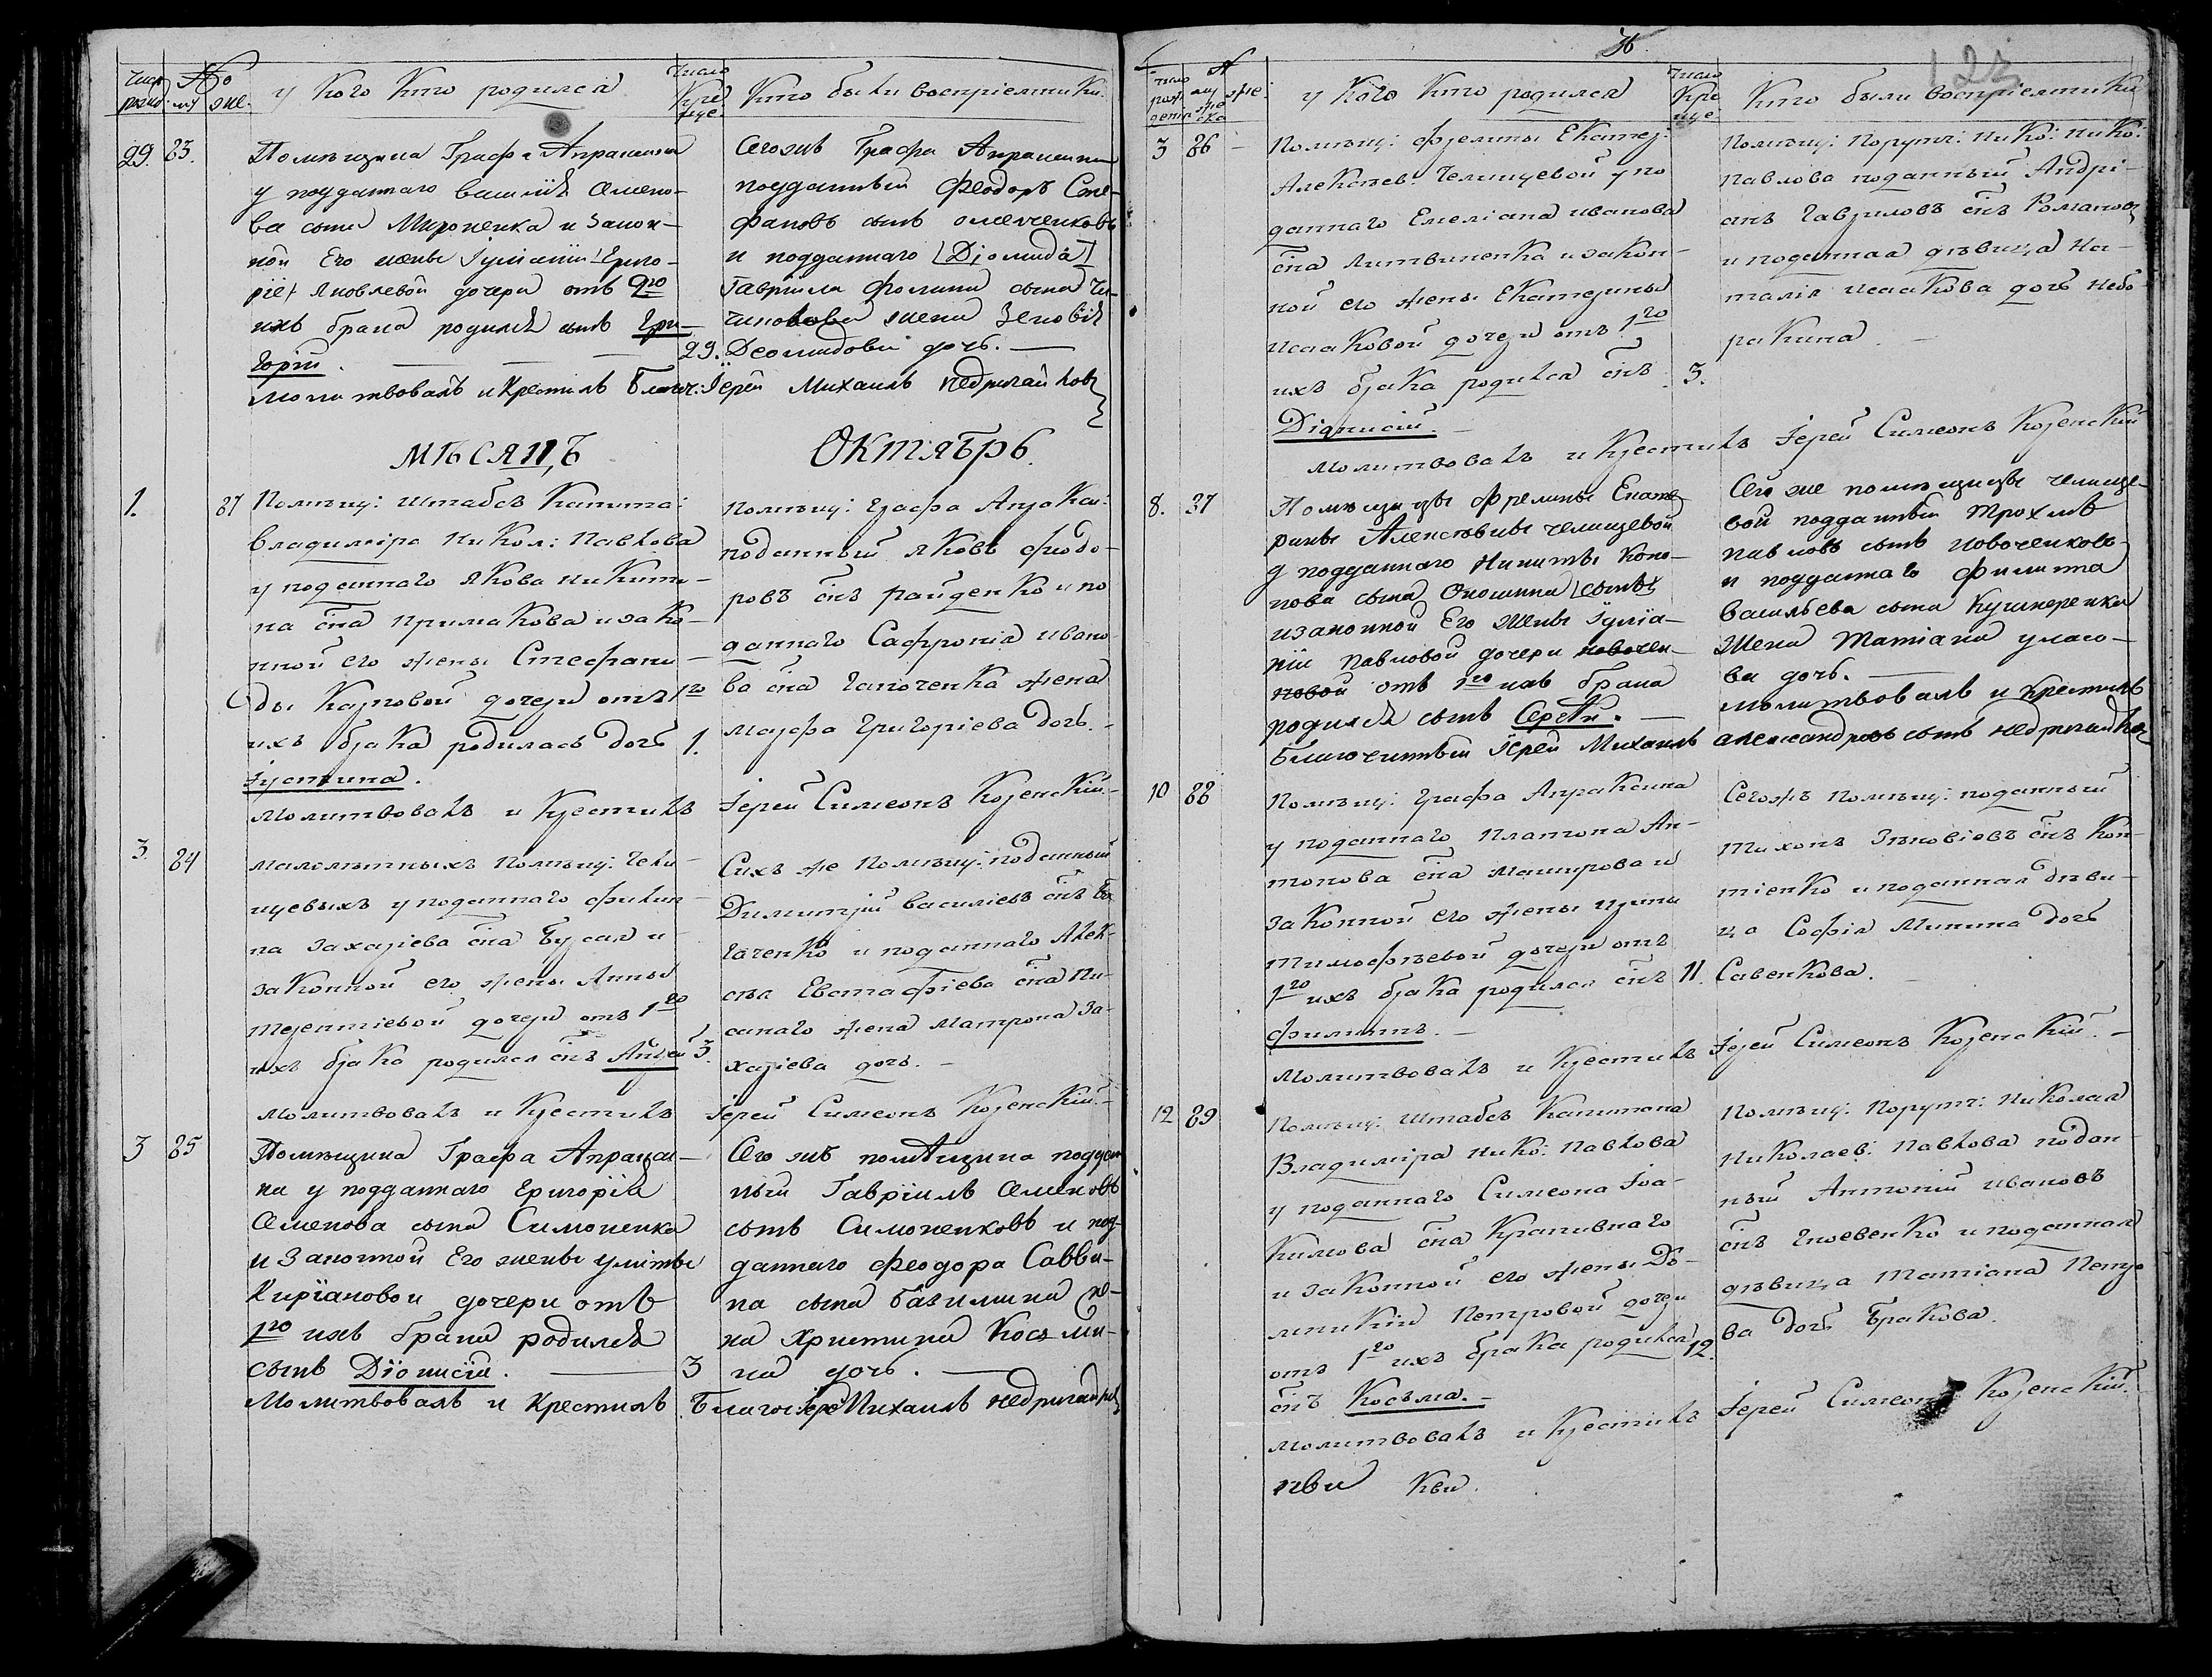 Число рожд. № муж. же.
у Кого Кто родился
Число Кре щe.
Кто были воспріемники.
29. 83.
Помѣщика Графа Апраксина
у подданнаго Василія Семено-
ва сына Мироненка и закон-
ной Его жены Іуліаніи
Яковлевой дочери отъ
ихъ брака родился сынъ Гри-
горій.
29.
Сегожъ Графа Апраксина
подданный Феодоръ Сте-
фановъ сынъ
и подданнаго (Діомида)
Гавріила Фомина сына
жена Зеновія
Деомидова дочь.
Молитвовалъ и Крестилъ Благоч: Іерей Михаилъ Недригайловъ
МѢСЯЦЪ ОКТЯБРЬ.
1. 81
Помѣщ: Штабсъ Капита:
Владиміра Никол: Павлова
у поданнаго Якова Никити-
на сна Примакова и зако-
нной его жены Стефани-
ды Карповой дочери отъ 1го
ихъ брака родилась дочь
Іустина.
1.
Помѣщ: Графа Апракси:
поданный Яковъ Феодо-
ровъ снъ Райденко и по
даннаго Сафронія Ивано
ва сна Гапоченка жена
Марфа Григоріева дочь.
Молитвовалъ и Крестилъ Іерей Симеонъ Козенскій.
3. 84
малолѣтныхъ Помѣщ: Чели-
щевыхъ у поданнаго Филип-
па Захаріева сна Бугая и
законной его жены Анны
Терентіевой дочери отъ 1го
ихъ брака родился снъ
3.
Сихъ же Помѣщ: поданный
Димитрій Василіевъ снъ
и поданнаго Алек-
сѣя Евстафіева сна Пи-
санаго жена Матрона За-
харіева дочь.
Молитвовалъ и Крестилъ Іерей Симеонъ Козенскій.
3 85
Помѣщика Графа Апракси-
на у подданнаго Григорія
Семенова сына Симоненка
и Законной Его жены Улиты
Кирїановой дочери отъ
1го ихъ брака родился
сынъ Дїонисій.
3
Сего жъ помѣщика поддан
ный Гавріилъ Семеновъ
сынъ Симоненковъ и под-
даннаго Феодора Савви-
на сына жe-
на Христина Косьми-
на дочь.
Молитвовалъ и Крестилъ Благоч: Іерей Михаилъ Недригайловъ
123
число рож денія № му жe ска жe.
у Кого Кто родился
Число Кре щe
Кто были воспріемники
3 86
Помѣщ: Фрелины Екатер:
Алексѣев: Челищевой у по
даннаго Емеліана Иванова
сна Литвиненка и закон-
ной его жены Екатерины
Исааковой дочери отъ 1го
ихъ брака родился снъ
Діонисій.
3.
Помѣщ: Порутч: Нико: Нико:
Павлова поданный Андрі-
анъ Гавриловъ снъ Романовъ
и поданная дѣвица На-
талія Исаакова дочь Небо-
ракина.
Молитвовалъ и Крестилъ Іерей Симеонъ Козенскій
8. 37
Помѣщицы Фрелины Екате-
рины Алексѣевны Челищевой
у подданнаго Никиты Коно-
нова сына
и законной Его Жены Іуліа-
ніи Павловой дочери
отъ 1го ихъ брака
родился сынъ Сергѣй.
Сего же помѣщицы Челище-
вой подданный Трохимъ
Павловъ сынъ Новоченковъ
и подданнаго Филиппа
Васильева сына Кушнеренка
Жена Татіана
ва дочь.
молитвовалъ и крестилъ
Благочинный Іерей Михаилъ Александровъ сынъ Недригайловъ
10 88
Помѣщ: Графа Апраксина
у поданнаго Платона Ан-
тонова сна Маширова и
законной его жены Ирины
Тимофѣевой дочери отъ
1го ихъ брака родился снъ
Филиппъ.
11.
Сегожъ Помѣщ: поданный
Тихонъ Зѣновіевъ снъ Кон-
тіенко и поданная дѣви-
ца Софія Минина дочь
Савенкова.
Молитвовалъ и Крестилъ Іерей Симеонъ Козенскій.
12 89
Помѣщ: Штабсъ Капитана
Владиміра Нико: Павлова
у поданнаго Симеона Іоа-
кимова сна Крапивнаго
и законной его жены До-
миникіи Петровой дочери
отъ 1го ихъ брака родился
снъ Косьма.
12.
Помѣщ: Порутч: Николая
Николаев: Павлова подан-
ный Антоній Ивановъ
снъ Гноевенко и поданная
дѣвица Татіана Петро
ва дочь Бракова.
Молитвовалъ и Крестилъ Іерей Симеонъ Козенскій.